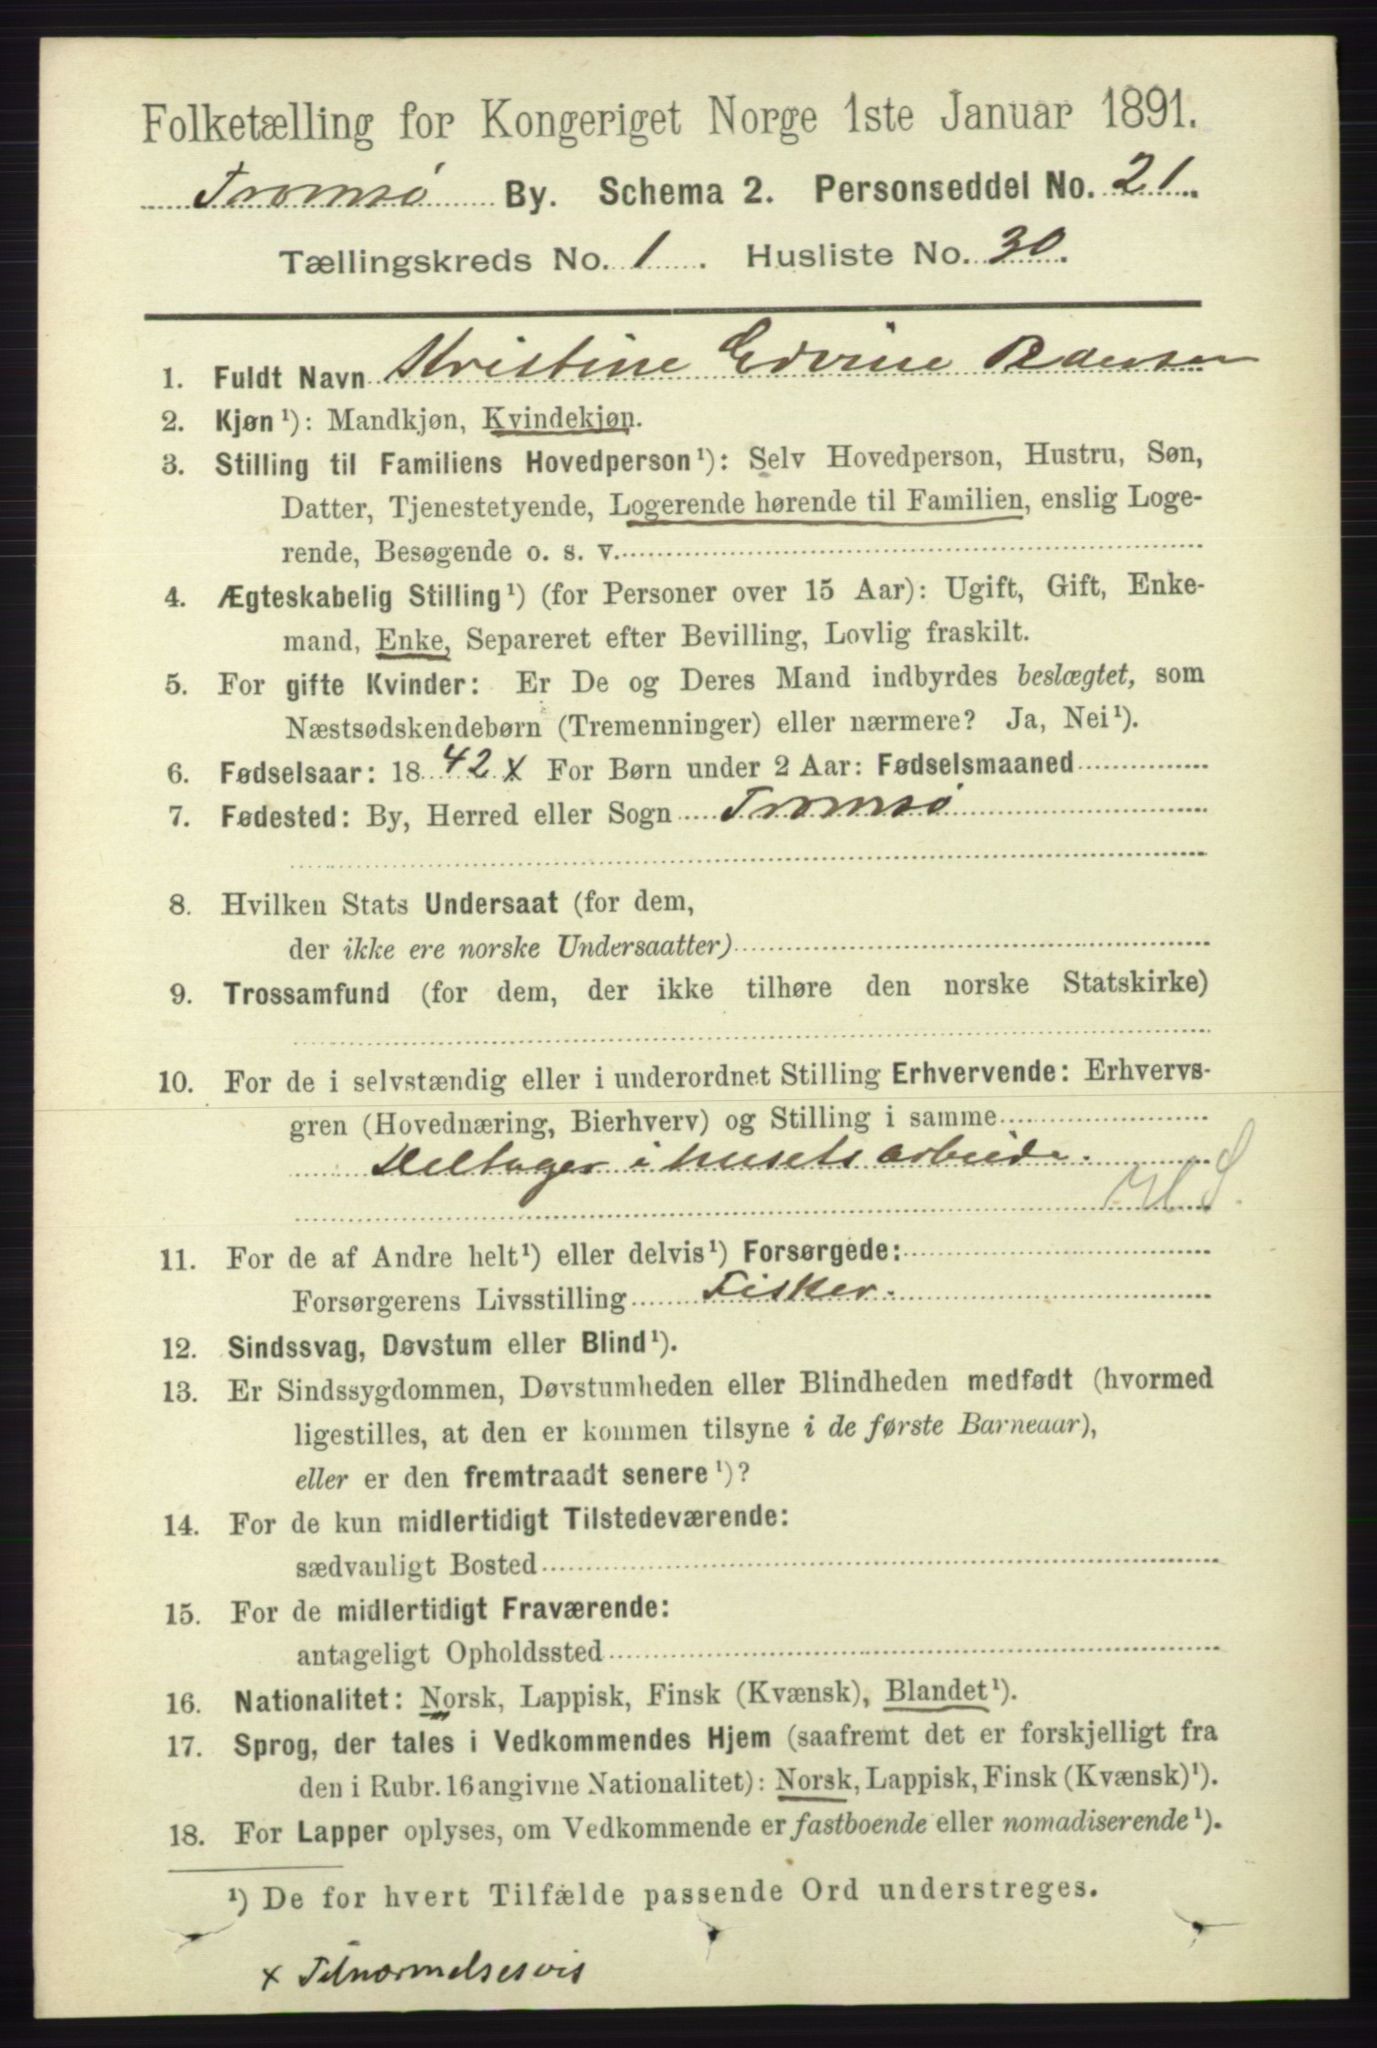 Folketælling for Kongeriget Norge 1ste Januar 1891.
Tromsø By. Schema 2. Personseddel No. 21.
Tællingskreds No. 1. Husliste No. 30.
1. Fuldt Navn Kristine Edvine
2. Kjøn¹): Mandkjøn, Kvindekjøn.
3. Stilling til Familiens Hovedperson¹): Selv Hovedperson, Hustru, Søn,
Datter, Tjenestetyende, Logerende hørende til Familien, enslig Loge-
rende, Besøgende o. s. v.
4. Ægteskabelig Stilling¹) (for Personer over 15 Aar): Ugift, Gift, Enke-
mand, Enke, Separeret efter Bevilling, Lovlig fraskilt.
5. For gifte Kvinder: Er De og Deres Mand indbyrdes beslægtet, som
Næstsødskendebørn (Tremenninger) eller nærmere? Ja, Nei¹).
6. Fødselsaar: 1842 x For Børn under 2 Aar: Fødselsmaaned
7. Fødested: By, Herred eller Sogn Tromsø
8. Hvilken Stats Undersaat (for dem,
der ikke ere norske Undersaatter)
9. Trossamfund (for dem, der ikke tilhøre den norske Statskirke)
10. For de i selvstændig eller i underordnet Stilling Erhvervende: Erhvervs-
gren (Hovednæring, Bierhverv) og Stilling i samme
Deltager i husets arbeide.
11. For de af Andre helt¹) eller delvis¹) Forsørgede:
Forsørgerens Livsstilling Fisker.
12. Sindssvag, Døvstum eller Blind¹).
13. Er Sindssygdommen, Døvstumheden eller Blindheden medfødt (hvormed
ligestilles, at den er kommen tilsyne i de første Barneaar),
eller er den fremtraadt senere¹)?
14. For de kun midlertidigt Tilstedeværende:
sædvanligt Bosted
15. For de midlertidigt Fraværende:
antageligt Opholdssted
16. Nationalitet: Norsk, Lappisk, Finsk (Kvænsk), Blandet¹).
17. Sprog, der tales i Vedkommendes Hjem (saafremt det er forskjelligt fra
den i Rubr. 16 angivne Nationalitet): Norsk, Lappisk, Finsk (Kvænsk)¹).
18. For Lapper oplyses, om Vedkommende er fastboende eller nomadiserende¹).
¹) De for hvert Tilfælde passende Ord understreges.
x Tilnærmelsesvis